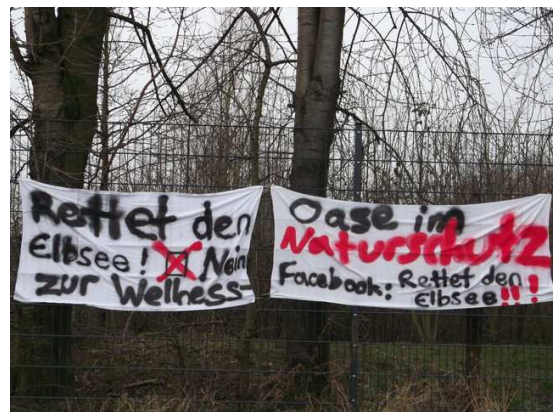 Rettet den
Elbsee! Nein
zur Wellness-
Oase im
Naturschutz
Facebook: Rettet den
Elbsee!!!